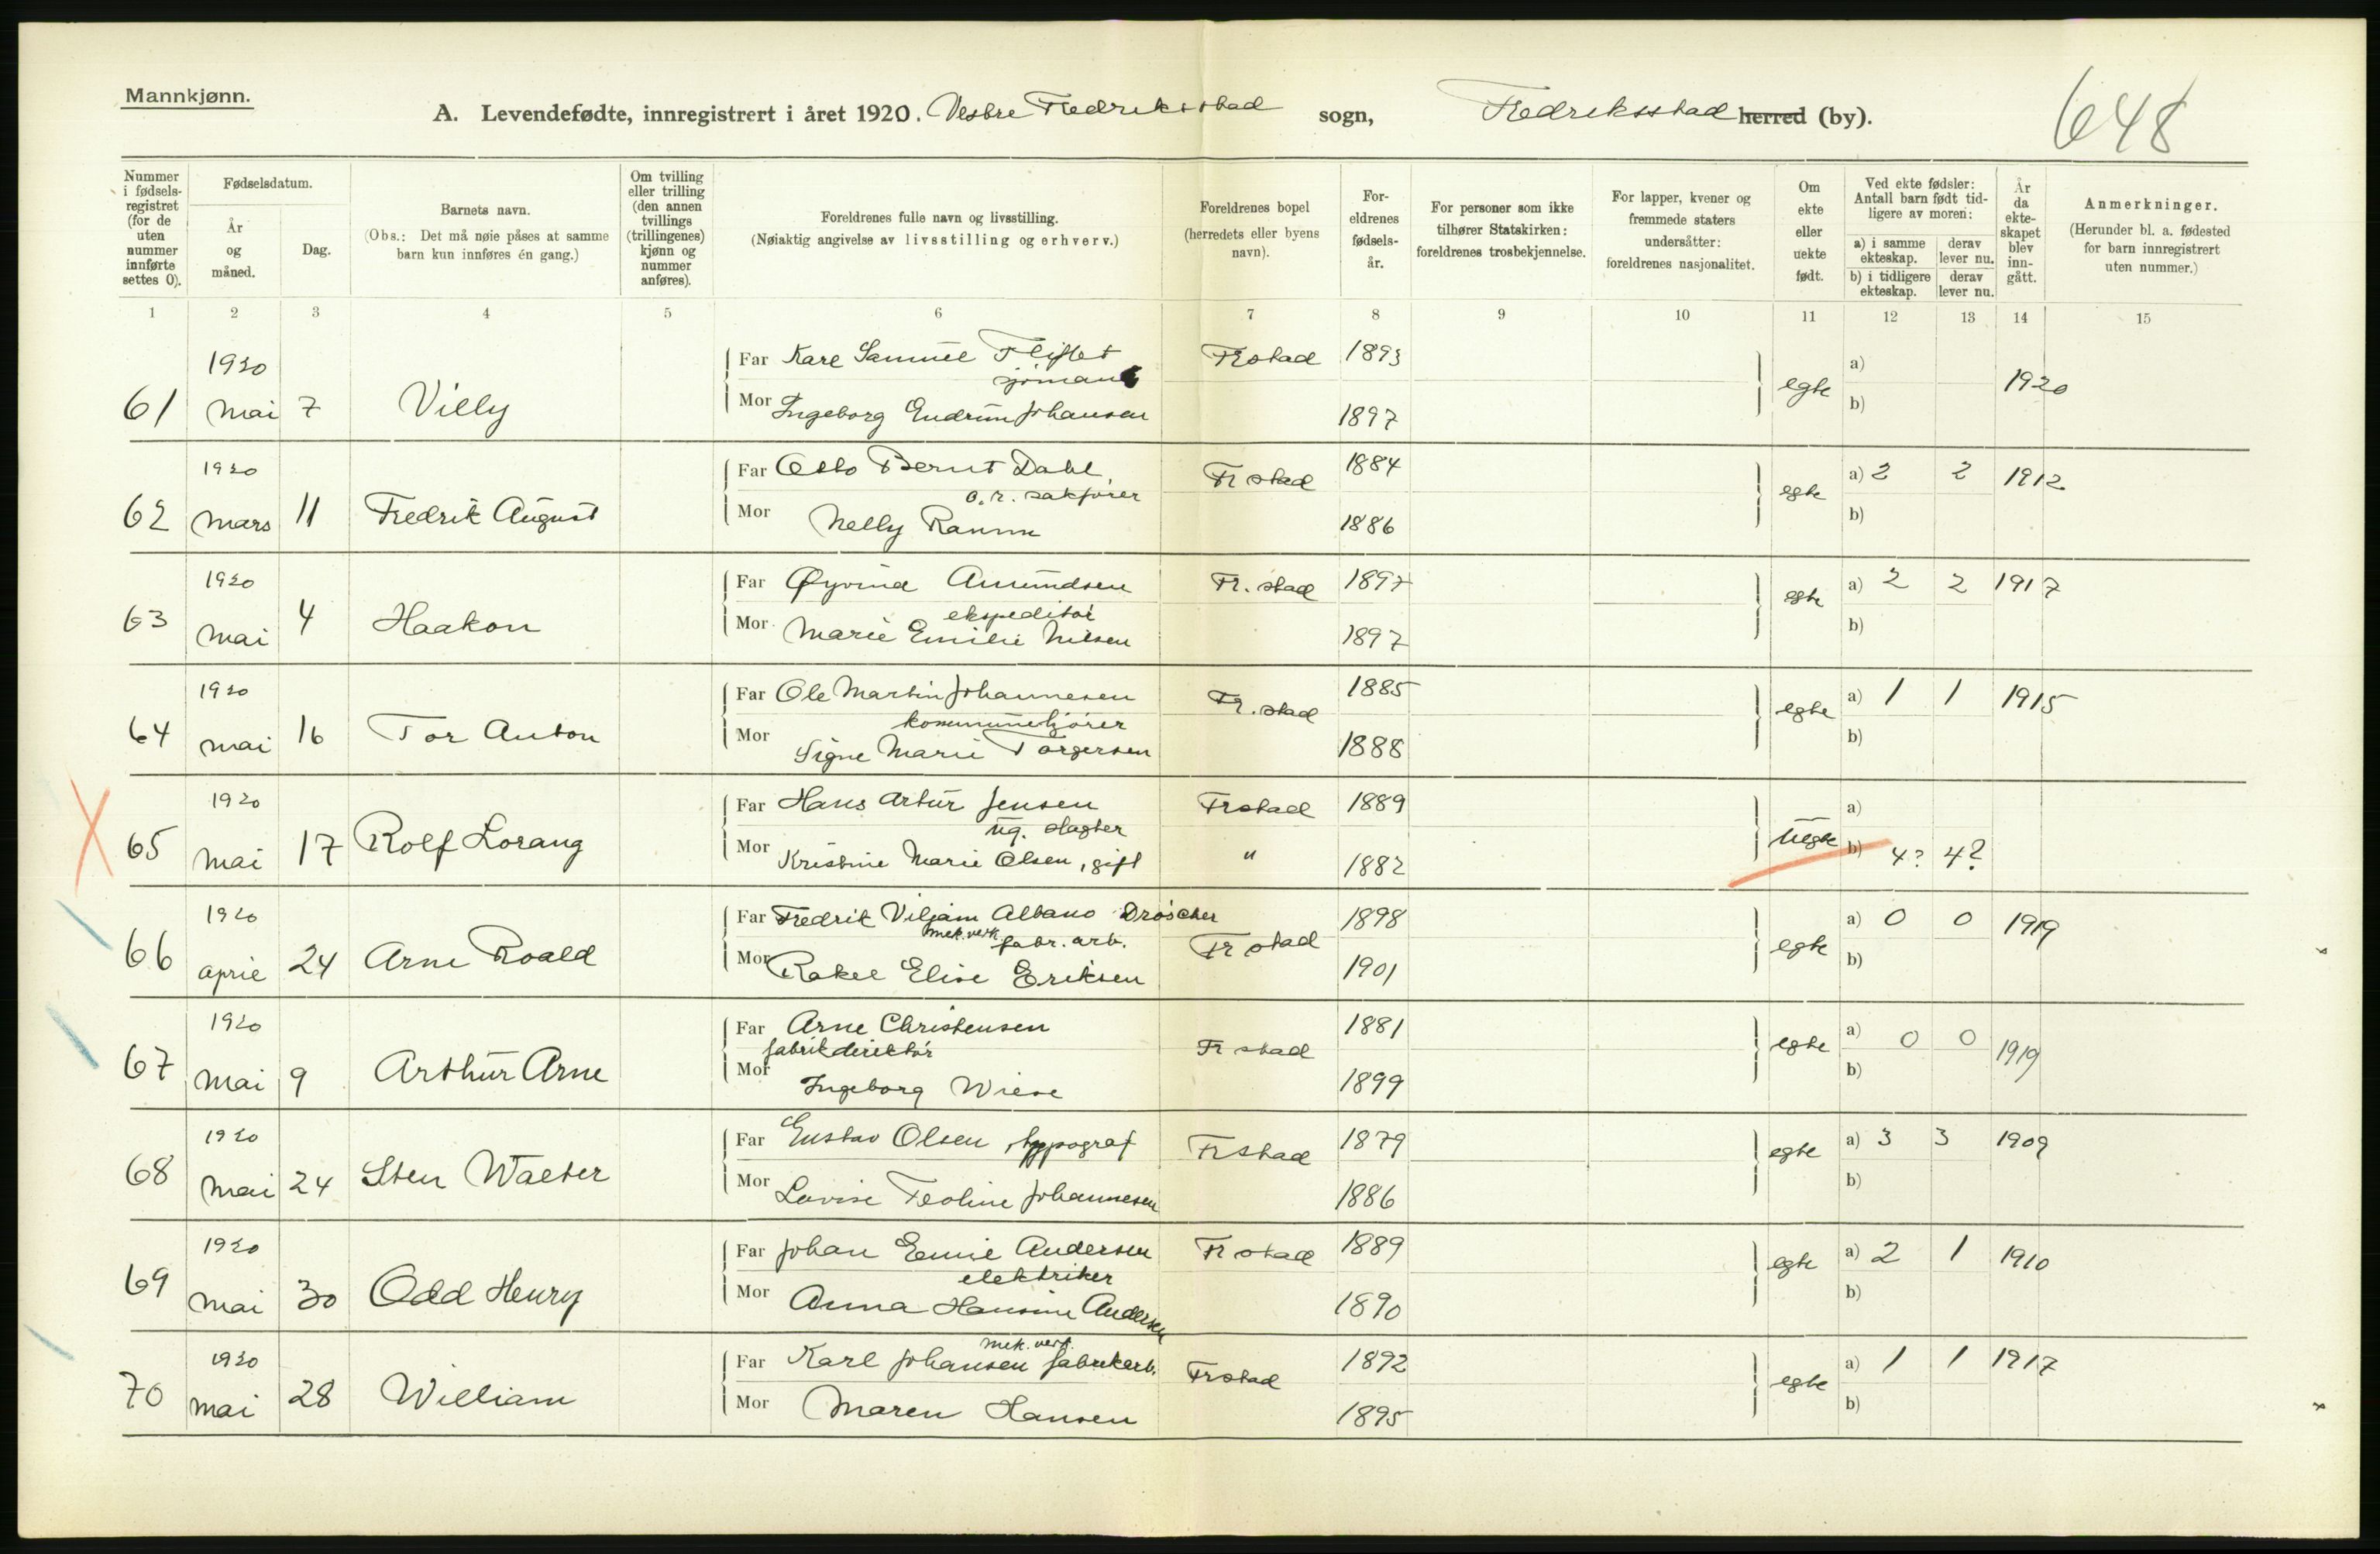 Mannkjønn.
A. Levendefødte, innregistrert i året 1920. Vestre Fredriksstad sogn, Fredriksstad herred (by). 648
Nummer i fødsels-registret (for de uten nummer innførte settes 0).
Fødselsdatum.
År og måned.
Dag.
Barnets navn.
(Obs.: Det må nøie påses at samme barn kun innføres én gang.)
Om tvilling eller trilling (den annen tvillings (trillingenes) kjønn og nummer anføres).
Foreldrenes fulle navn og livsstilling.
(Nøiaktig angivelse av livsstilling og erhverv.)
Foreldrenes bopel (herredets eller byens navn).
For-eldrenes fødsels-år.
For personer som ikke tilhører Statskirken: foreldrenes trosbekjennelse.
For lapper, kvener og fremmede staters undersåtter: foreldrenes nasjonalitet.
Om ekte eller uekte født.
Ved ekte fødsler: Antall barn født tid-ligere av moren:
a) i samme ekteskap.
derav lever nu.
b) i tidligere ekteskap.
derav lever nu.
År da ekte-skapet blev inn-gått.
Anmerkninger.
(Herunder bl. a. fødested for barn innregistrert uten nummer.)
1 2 3 4 5 6 7 8 9 10 11 12 13 14 15
1920 Far Karl Samuel Frstad 1893 a)
sjømann
61 mai 7 Villy Mor Ingeborg Gudrun Johansen 1897 egte b) 1920
1920 Far Otto Bernt Dahl Fr stad 1884 a) 2 2 1912
o.r. sakfører
62 mars 11 Fredrik August Mor Nelly Ramm 1886 egte b)
1920 Far Øyvind Amundsen Fr. stad 1897 a) 2 2 1917
ekspeditør
63 mai 4 Haakon Mor Marie Emilie Nilsen 1897 egte b)
1920 Far Ole Martin Johannesen Fr. stad 1885 a) 1 1 1915
kommunekjører
64 mai 16 Tor Anton Mor Signe Marie Torgersen 1888 egte b)
1920 Far Hans Artur Jensen Frstad 1889 a)
ug. slagter
65 mai 17 Rolf Lorang Mor Kristine Marie Olsen, gift " 1882 uegte b) 4? 4?
1920 Far Fredrik Viljam Albano Dröscher Fr stad 1898 a) 0 0 1919
mek. verk fabr. arb.
66 april 24 Arne Roald Mor Rakel Elise Eriksen 1901 egte b)
1920 Far Arne Christensen Fr stad 1881 a) 0 0 1919
fabrikdirektør
67 mai 9 Arthur Arne Mor Ingeborg Wiese 1899 egte b)
1920 Far Gustav Olsen, typograf Frstad 1879 a) 3 3 1909
68 mai 24 Sten Walter Mor Lovise Teoline Johannesen 1886 egte b)
1920 Far Johan Emil Andersen Fr stad 1889 a) 2 1 1910
elektriker
69 mai 30 Odd Henry Mor Anna Hansine Andersen 1890 egte b)
mek. verk.
1920 Far Karl Johansen fabrikarb. Frstad 1892 a) 1 1 1917
70 mai 28 William Mor Maren Hansen 1895 egte b)